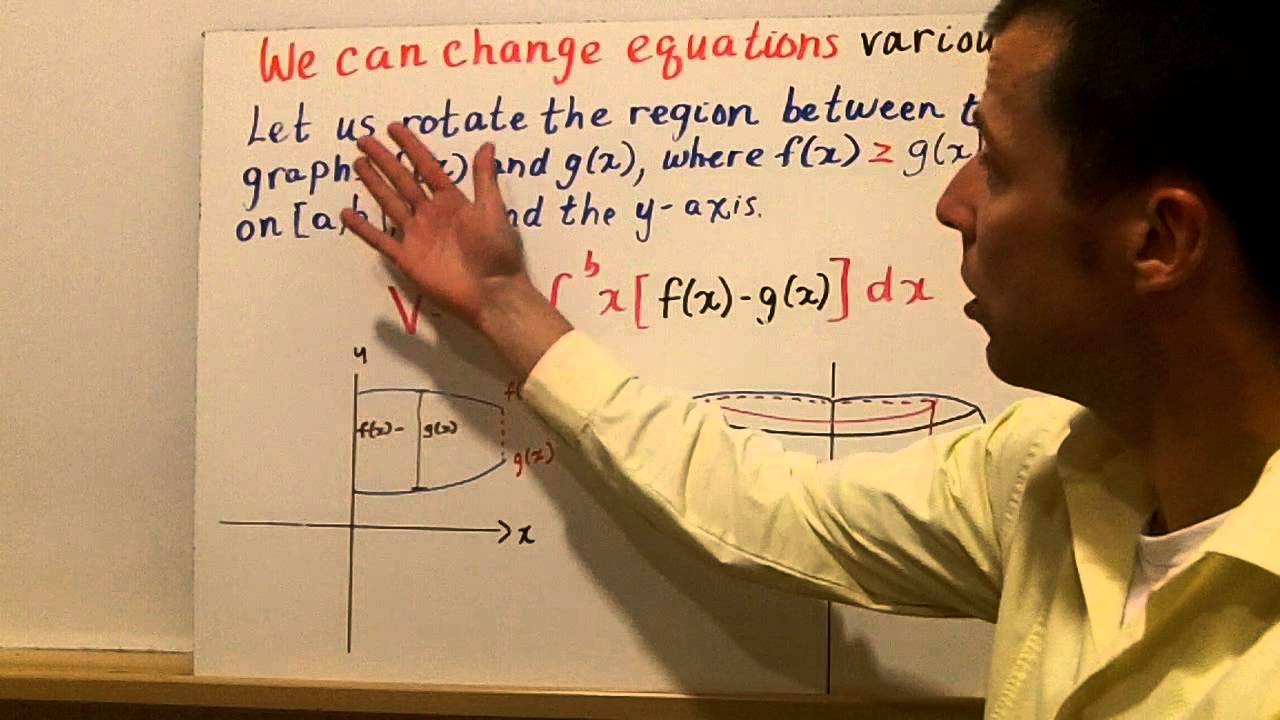 We can change equations
Let us rotate the region between
graphs and g(x), where f(x) ≥ g(x)
on [a, b], and the y-axis.
V ∫ b x [f(x) - g(x)] dx
y
f(x) - g(x)
g(x)
x